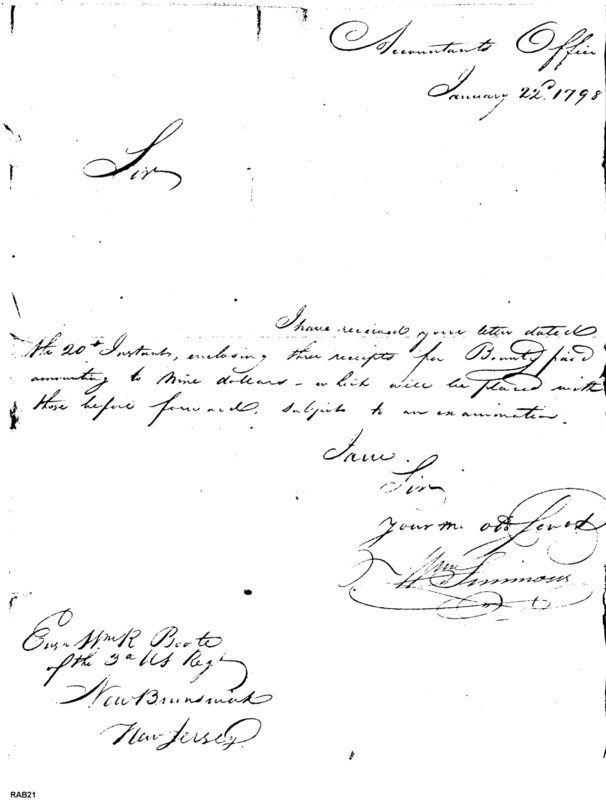 Accountants Office
January 22d. 1798
Sir
I have received your letter dated
the 20th Instant, enclosing three receipts for Bounty paid
amounting to Nine dollars - which will be placed with
those before forward, subject to an examination.
I am.
Sir
your m. obt Servt
Wm Simmons
Ensn Wm R Boote
of the 3d US Regt
New Brunswick
New Jersey
RAB21